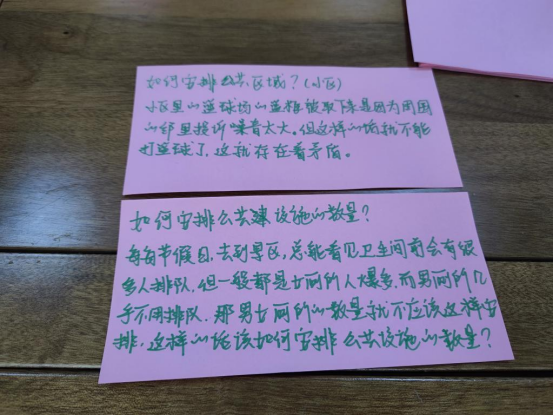 如何安排公共区域？(小区)
小区里的篮球场的篮框被取下来是因为周围
的邻里投诉噪音太大。但这样的话就不能
打篮球了，这就存在着矛盾。
如何安排公共建设施的数量？
每每节假日，去到景区，总能看见卫生间前会有很
多人排队，但一般都是女厕的人爆多，而男厕的几
乎不用排队。那男女厕的的数量就不应该这样安
排，这样的话该如何安排公共设施的数量？